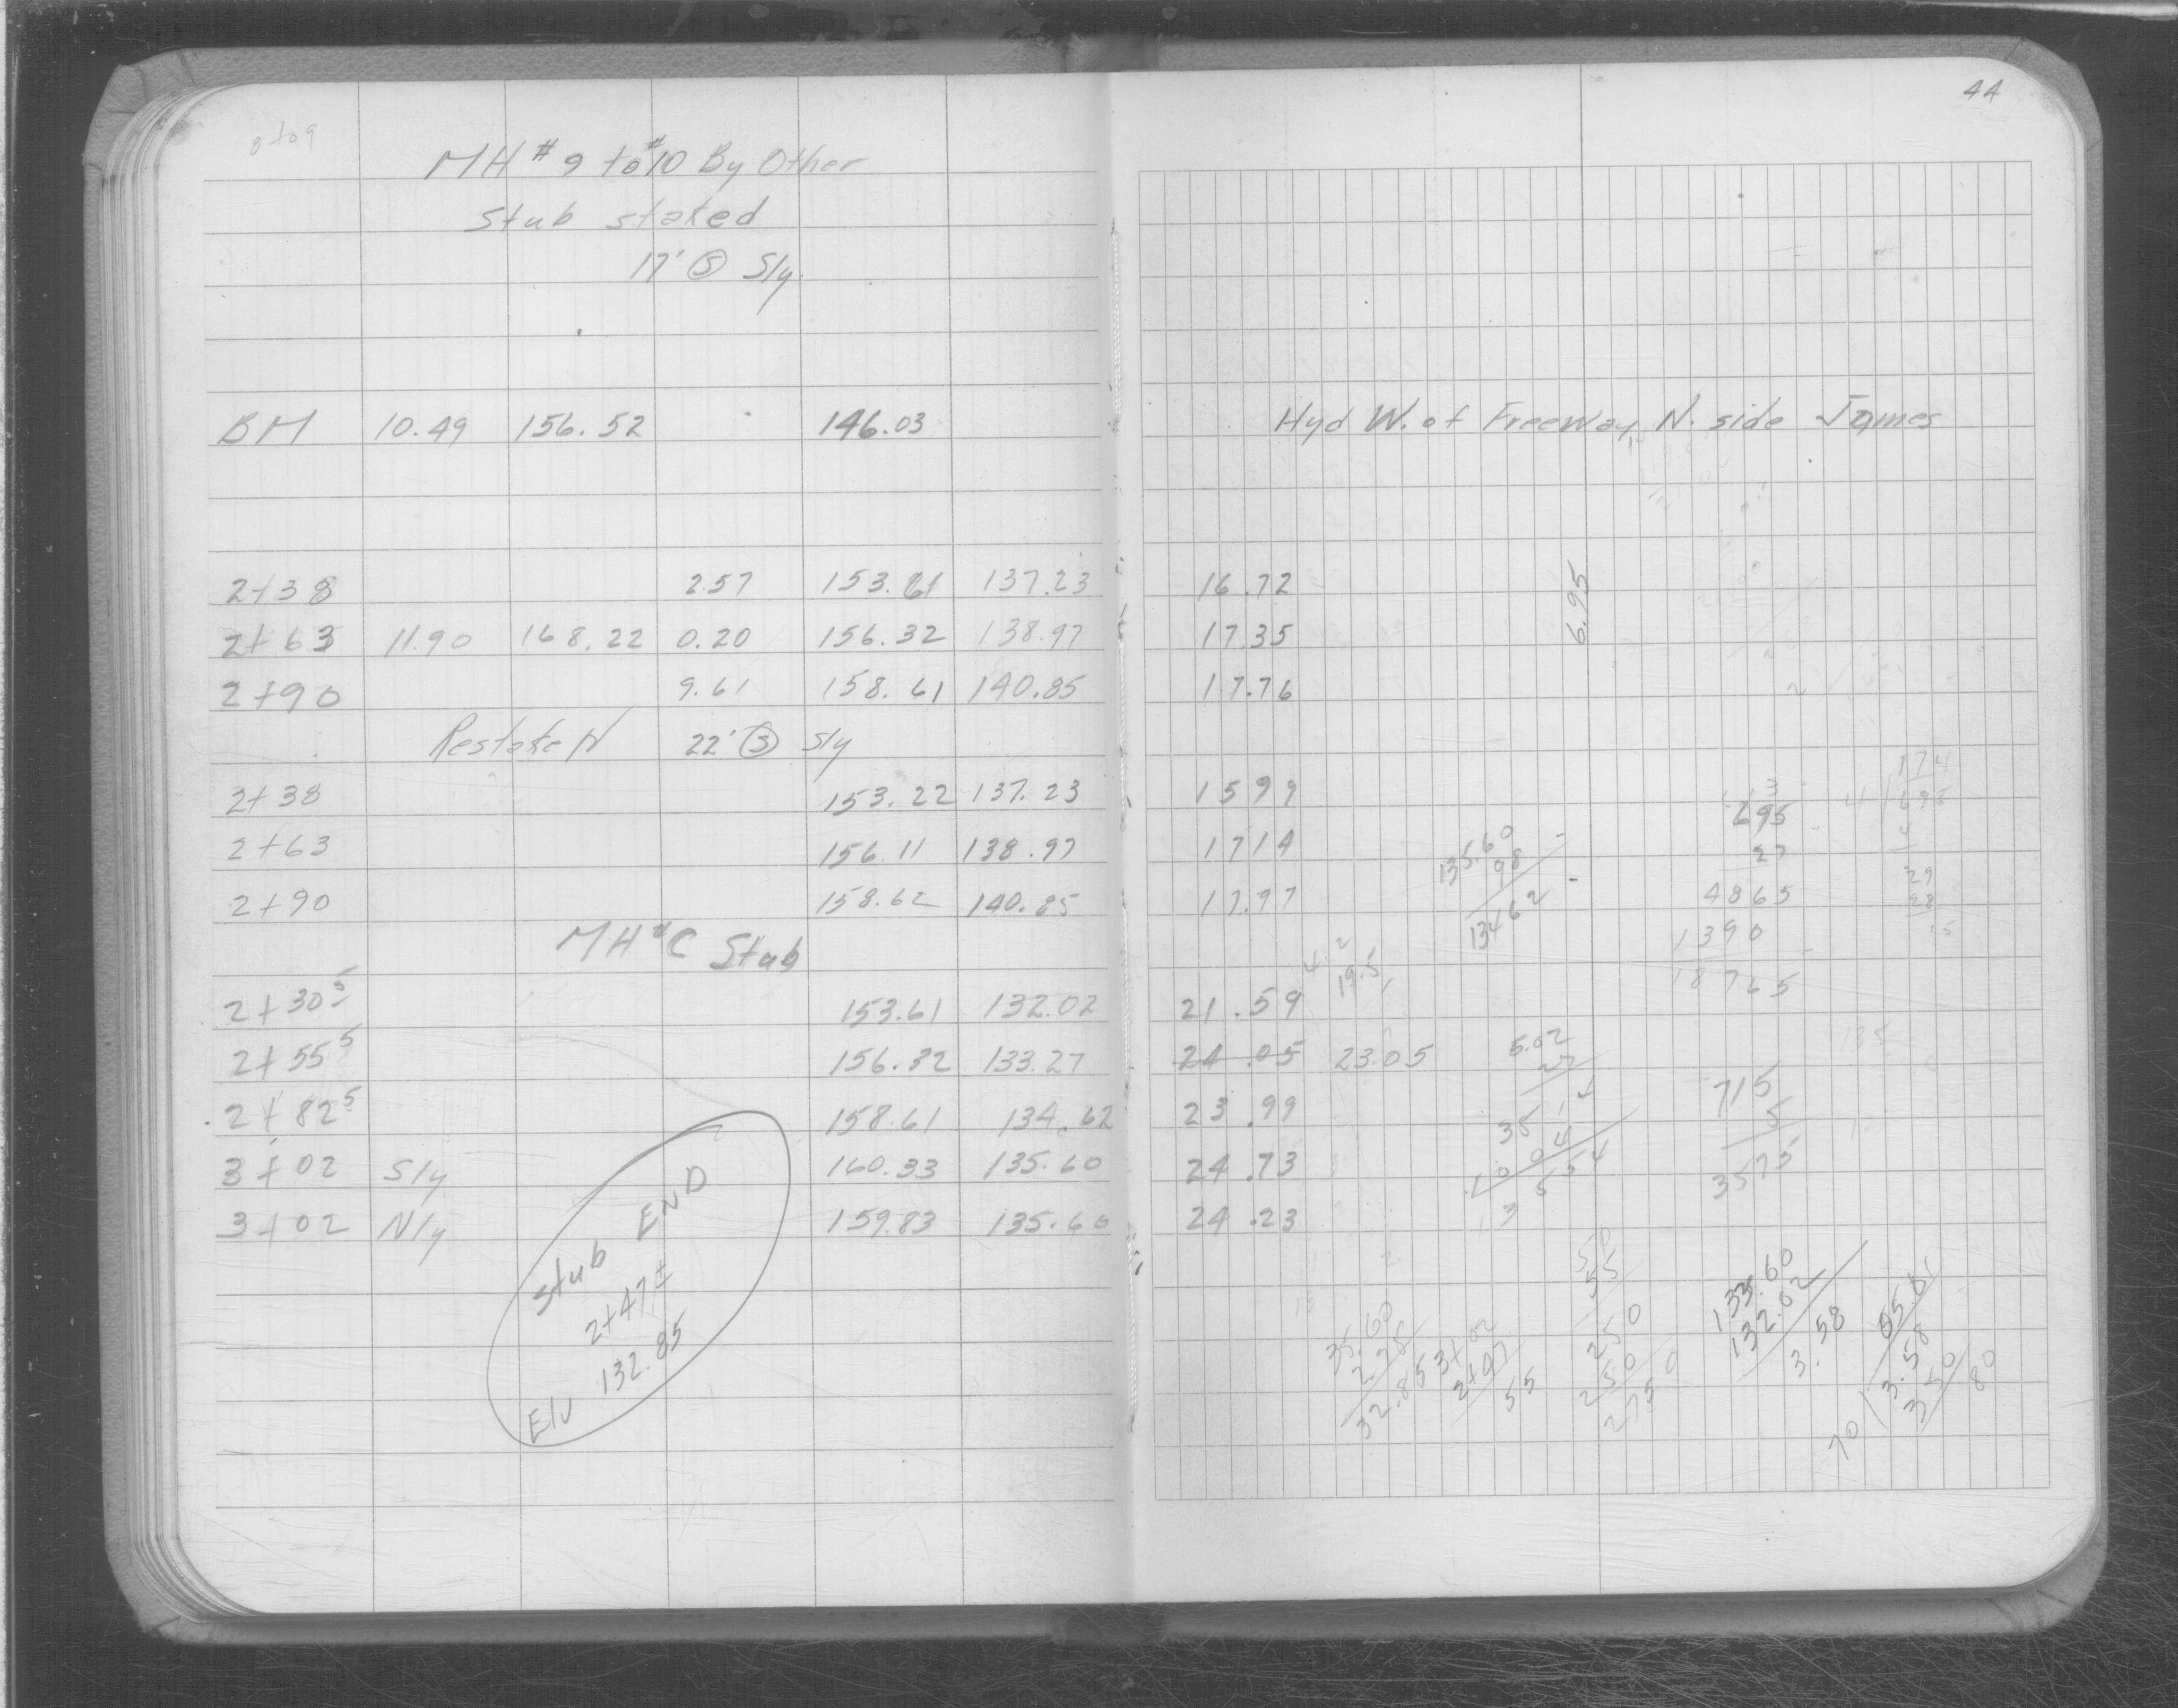 8 to 9
MH # 9 to #10 By Other
Stub staked
17' Ⓢ Sly.
BM 10.49 156.52 146.03
2+38 2.57 153.61 137.23
2+63 11.90 168.22 0.20 156.32 138.97
2+90 9.61 158.61 140.85
Restake N 22' Ⓢ Sly
2+38 153.22 137.23
2+63 156.11 138.97
2+90 158.62 140.85
MH #C Stub
2+30⁵ 153.61 132.02
2+55⁵ 156.32 133.27
2+82⁵ 158.61 134.62
3+02 Sly 160.33 135.60
3+02 Nly 159.83 135.60
Stub END
2+47±
Elv 132.85
44
Hyd W. of Freeway, N. side James
16.72
17.35
17.76
6.95
15 99
17 14
17.77
135.60
98
134 62
695
27
4865
1390
18765
174
4 695
4
29
28
15
19.5
21.59
24.05 23.05
23.99
24.73
24.23
5.02
27
715
5
3575
35.60
2.75
32.85
3+02
2+47
55
50
55
250
250
2750
135.60
132.02
3.58
70 3.58
3 50
80